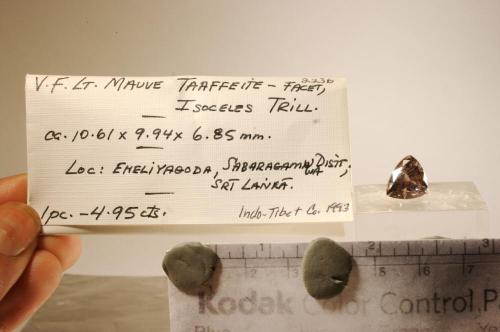 2236
V.F. LT. MAUVE TAAFFEITE - FACET,
ISOCELES TRILL.
ca. 10.61 x 9.94 x 6.85 mm.
LOC: EHELIYAGODA, SABARAGAMUWA DIST.,
SRI LANKA.
1pc. - 4.95 cts.
Indo-Tibet Co. 1993
1 2 3
5 6 7
Kodak Color Control P